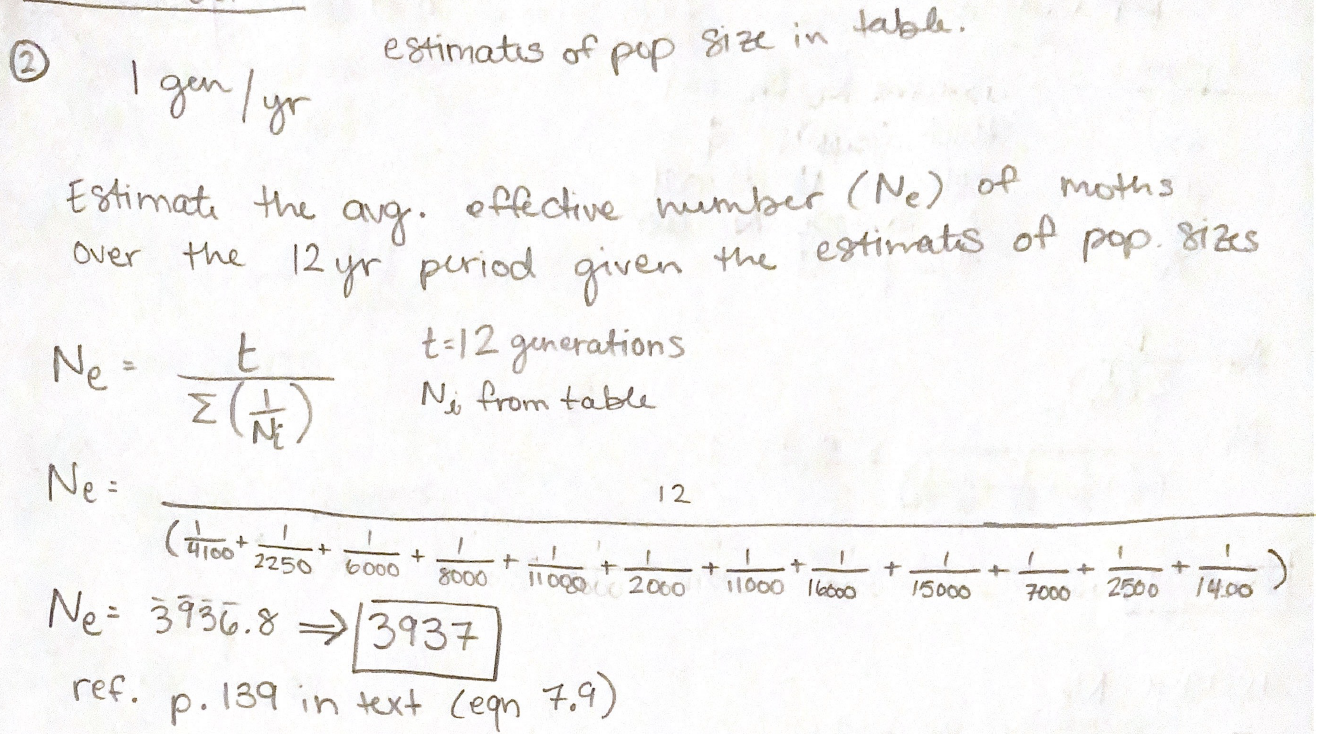 ② estimates of pop size in table.
1 gen/yr
Estimate the avg. effective number (Ne) of moths
over the 12 yr period given the estimates of pop. sizes
Ne = t / Σ(1/Ni) t=12 generations
Ni from table
Ne = 12 / (1/4100 + 1/2250 + 1/6000 + 1/8000 + 1/11000 + 1/2000 + 1/11000 + 1/16000 + 1/15000 + 1/7000 + 1/2500 + 1/1400)
Ne = 3936.8 ⇒ 3937
ref. p. 139 in text (eqn 7.9)